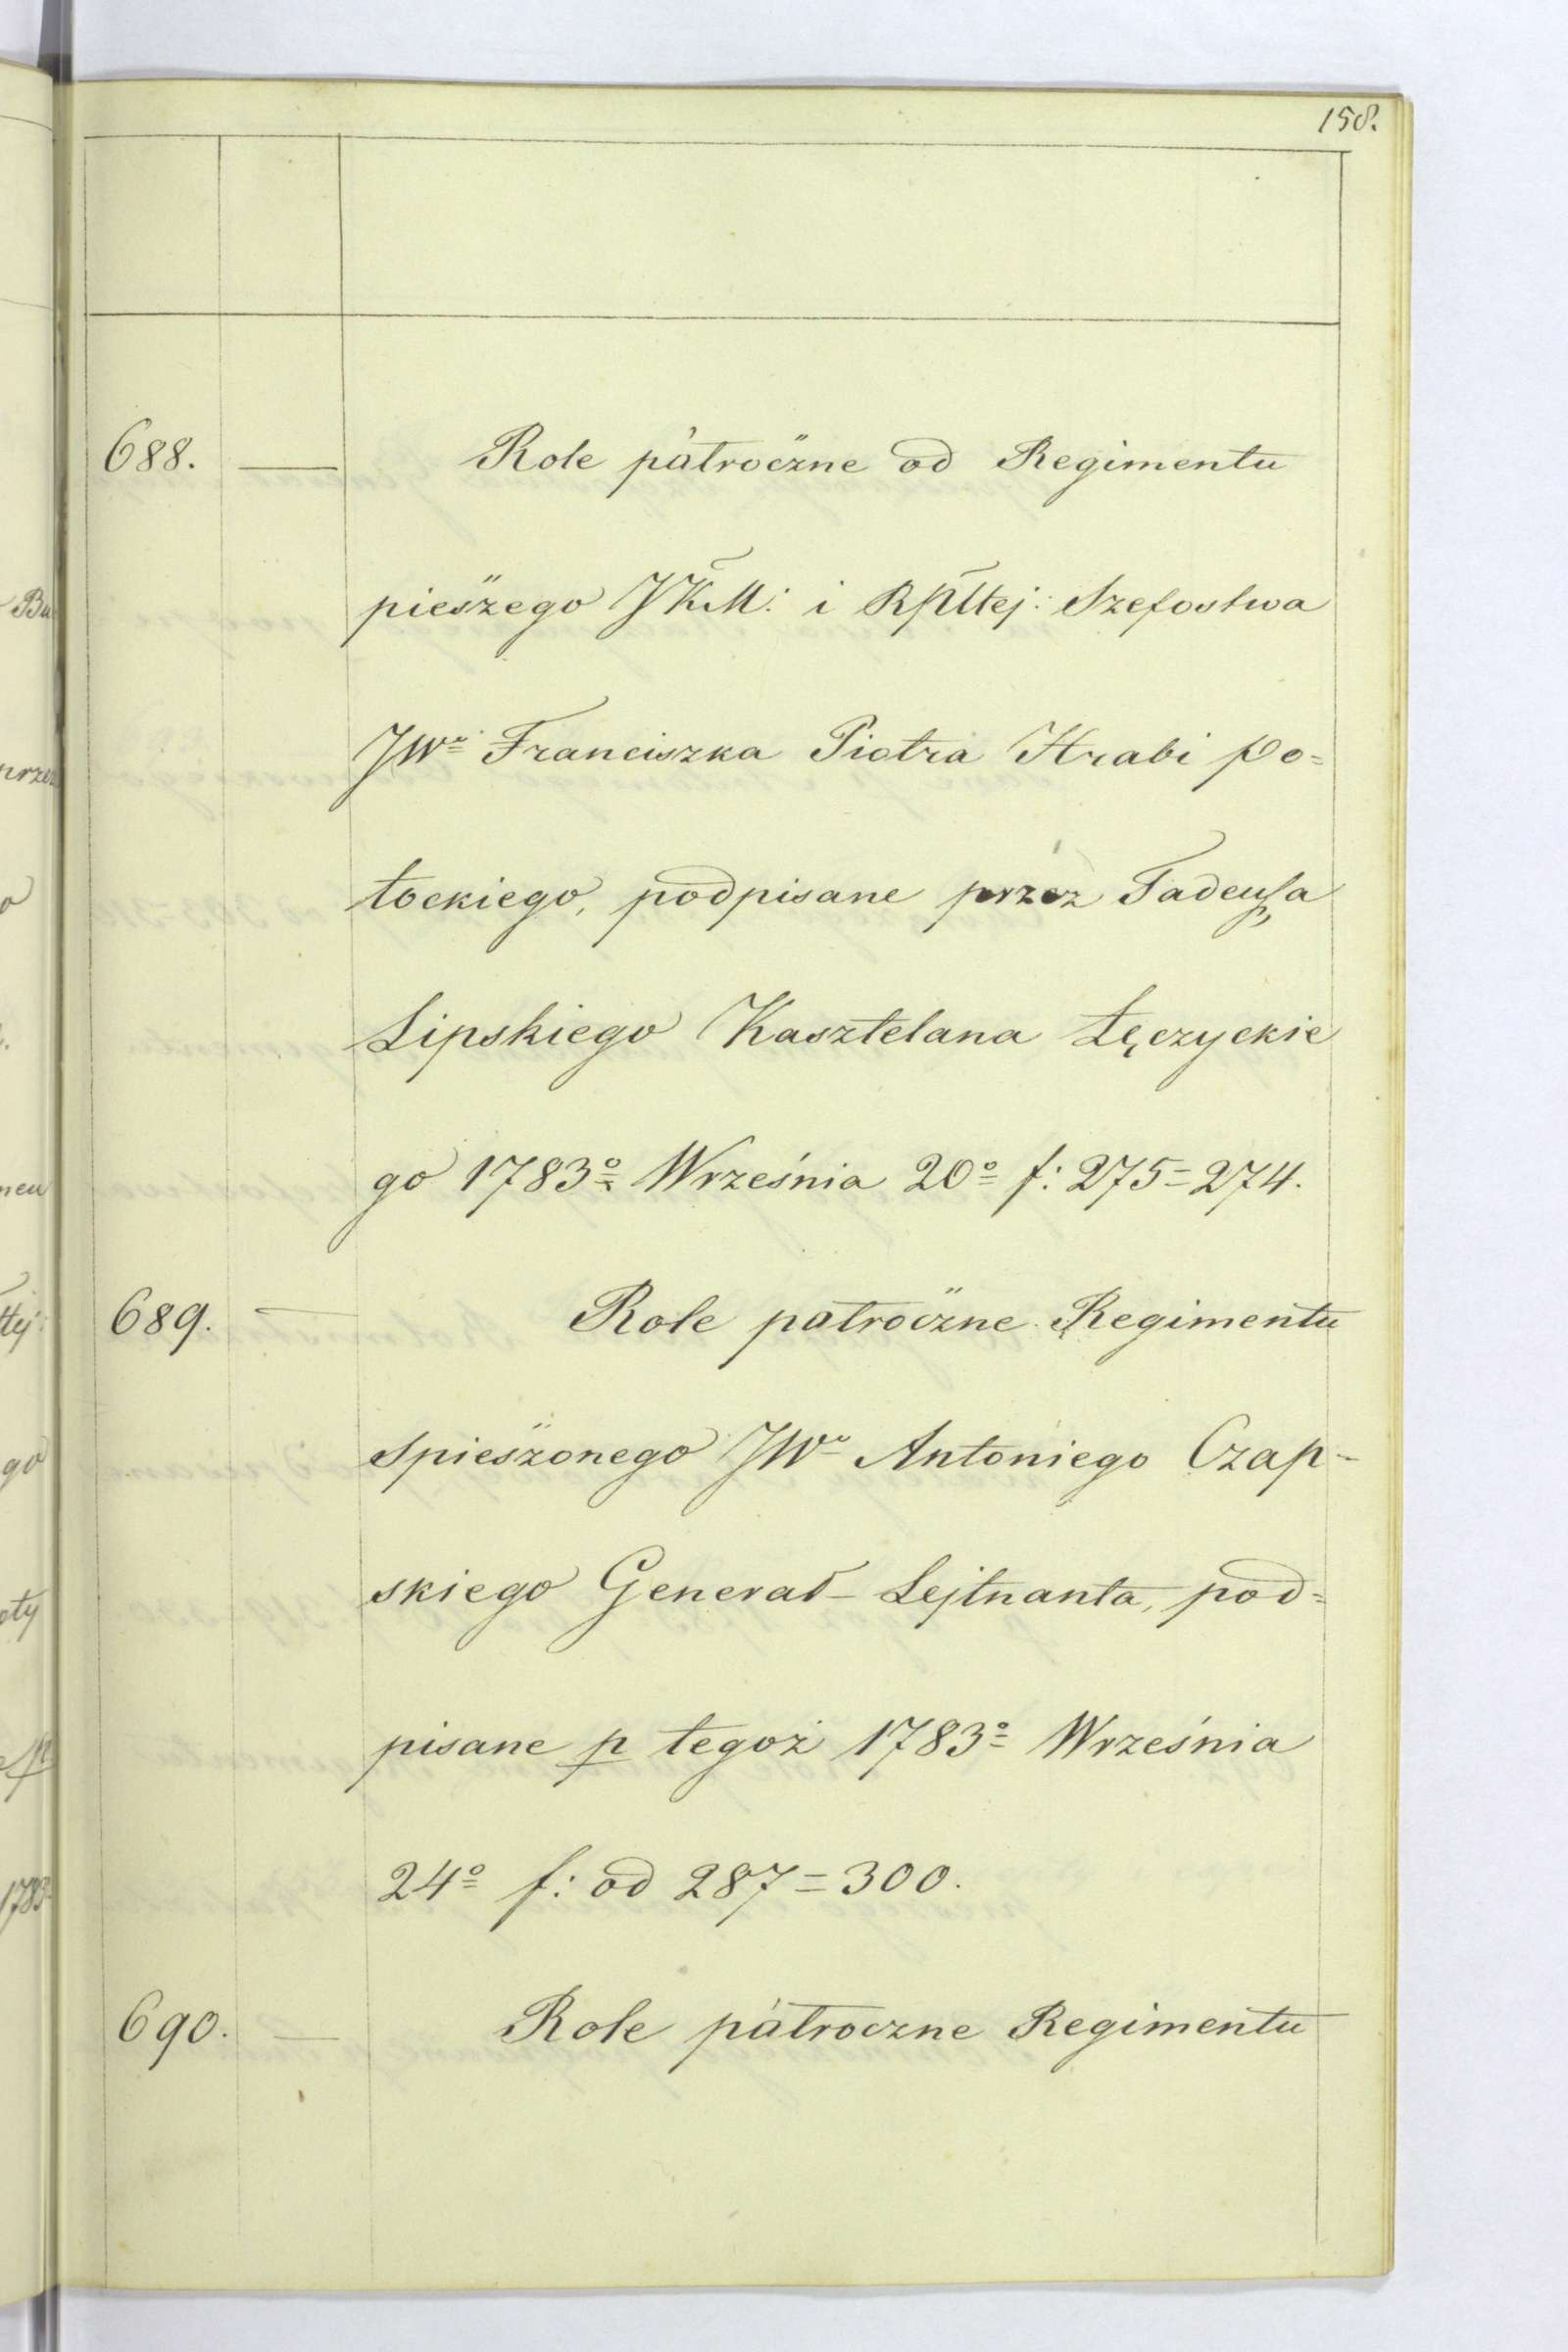 158.
688. — Role pułroczne od Regimentu
pieszego JKM: i Rpltej: Szefostwa
JWo Franciszka Piotra Hrabi Po=
tockiego, podpisane przez Tadeusza
Lipskiego Kasztelana Łęczyckie
go 1783o Września 20o f: 275=274.
689. — Role patroczne Regimentu
Spieszonego JWo Antoniego Czap-
skiego Generał-Lejtnanta, pod=
pisane p tegoż 1783o Września
24o f: od 287=300.
690. — Role pułroczne Regimentu